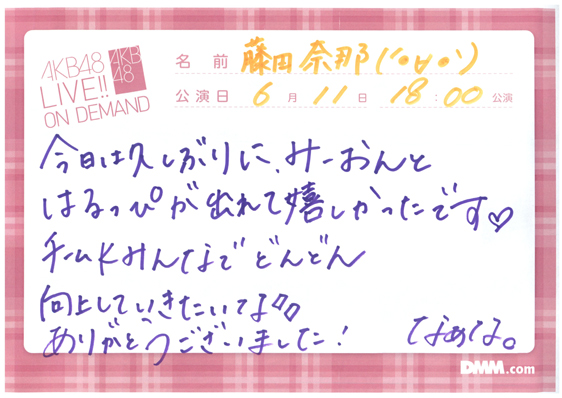 AKB48
LIVE!!
ON DEMAND
AKB
48
名前 藤田奈那(´•∀•`)
公演日 6月11日 18:00公演
今日は久しぶりに、みーおんと
はるっぴが出れて嬉しかったです♡
チームKみんなでどんどん
向上していきたいな
ありがとうございました!
なぁな。
DMM.com